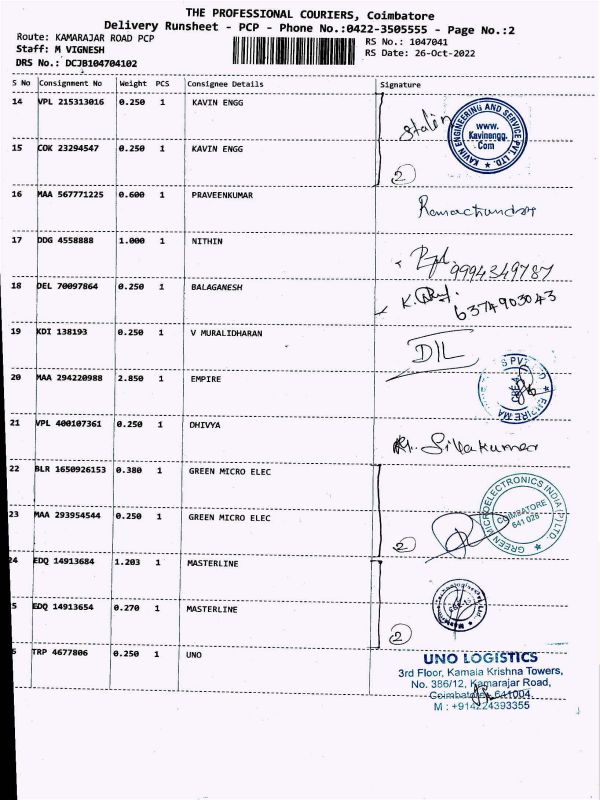 THE PROFESSIONAL COURIERS, Coimbatore
Delivery Runsheet - PCP - Phone No.:0422-3505555 - Page No.:2
Route: KAMARAJAR ROAD PCP
RS No.: 1047041
Staff: M VIGNESH
RS Date: 26-Oct-2022
DRS No.: DCJB104704102
S No Consignment No Weight PCS Consignee Details Signature
14 VPL 215313016 0.250 1 KAVIN ENGG
Stalin
KAVIN ENGINEERING AND SERVICE PVT. LTD.
www.
Kavinengg.
Com
15 COK 23294547 0.250 1 KAVIN ENGG
2
16 MAA 567771225 0.600 1 PRAVEENKUMAR
Ramachandra
17 DDG 4558888 1.000 1 NITHIN
9994349787
18 DEL 70097864 0.250 1 BALAGANESH
K.
6374903043
19 KDI 138193 0.250 1 V MURALIDHARAN
DIL
20 MAA 294220988 2.850 1 EMPIRE
EMPIRE
21 VPL 400107361 0.250 1 DHIVYA
Sivakumar
22 BLR 1650926153 0.380 1 GREEN MICRO ELEC
GREEN MICROELECTRONICS INDIA (P) LTD
COIMBATORE
641 026
23 MAA 293954544 0.250 1 GREEN MICRO ELEC
2
24 EDQ 14913684 1.203 1 MASTERLINE
5 EDQ 14913654 0.270 1 MASTERLINE
2
6 TRP 4677806 0.250 1 UNO
UNO LOGISTICS
3rd Floor, Kamala Krishna Towers,
No. 386/12, Kamarajar Road,
Coimbatore - 641004.
M : +914224393355